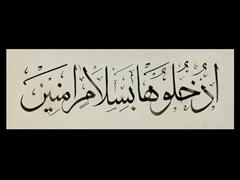 ادْخُلُوهَا بِسَلَامٍ اٰمِنِينَ